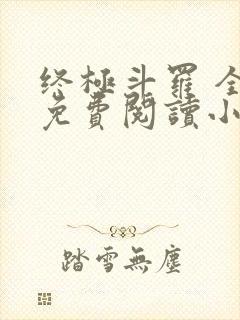 终極斗羅 全
免費閱讀小
踏雪無塵